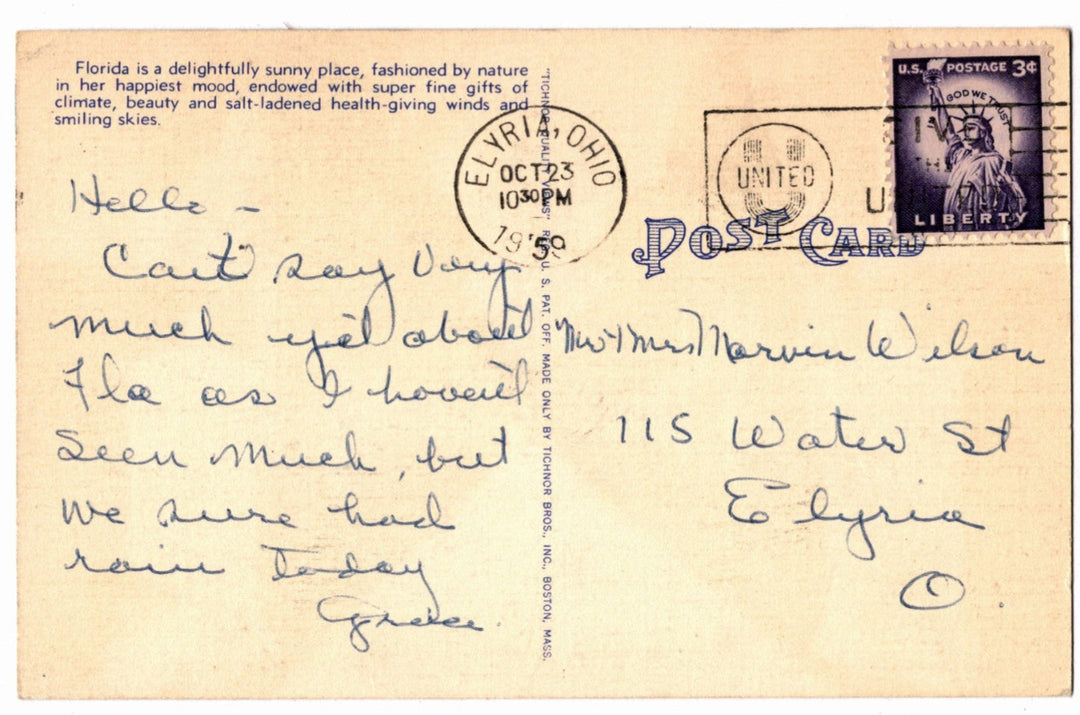 Florida is a delightfully sunny place, fashioned by nature
in her happiest mood, endowed with super fine gifts of
climate, beauty and salt-ladened health-giving winds and
smiling skies.
Hello -
Can't say very
much yet about
Fla as I haven't
seen much, but
we sure had
rain today
Grace.
"TICHNOR QUALITY VIEWS" REG. U. S. PAT. OFF. MADE ONLY BY TICHNOR BROS., INC., BOSTON, MASS.
ELYRIA, OHIO
OCT 23
10 30 PM
19 59
UNITED
U.S. POSTAGE 3¢
IN GOD WE TRUST
LIBERTY
POST CARD
Mr & Mrs Marvin Wilson
115 Water St
Elyria
O.